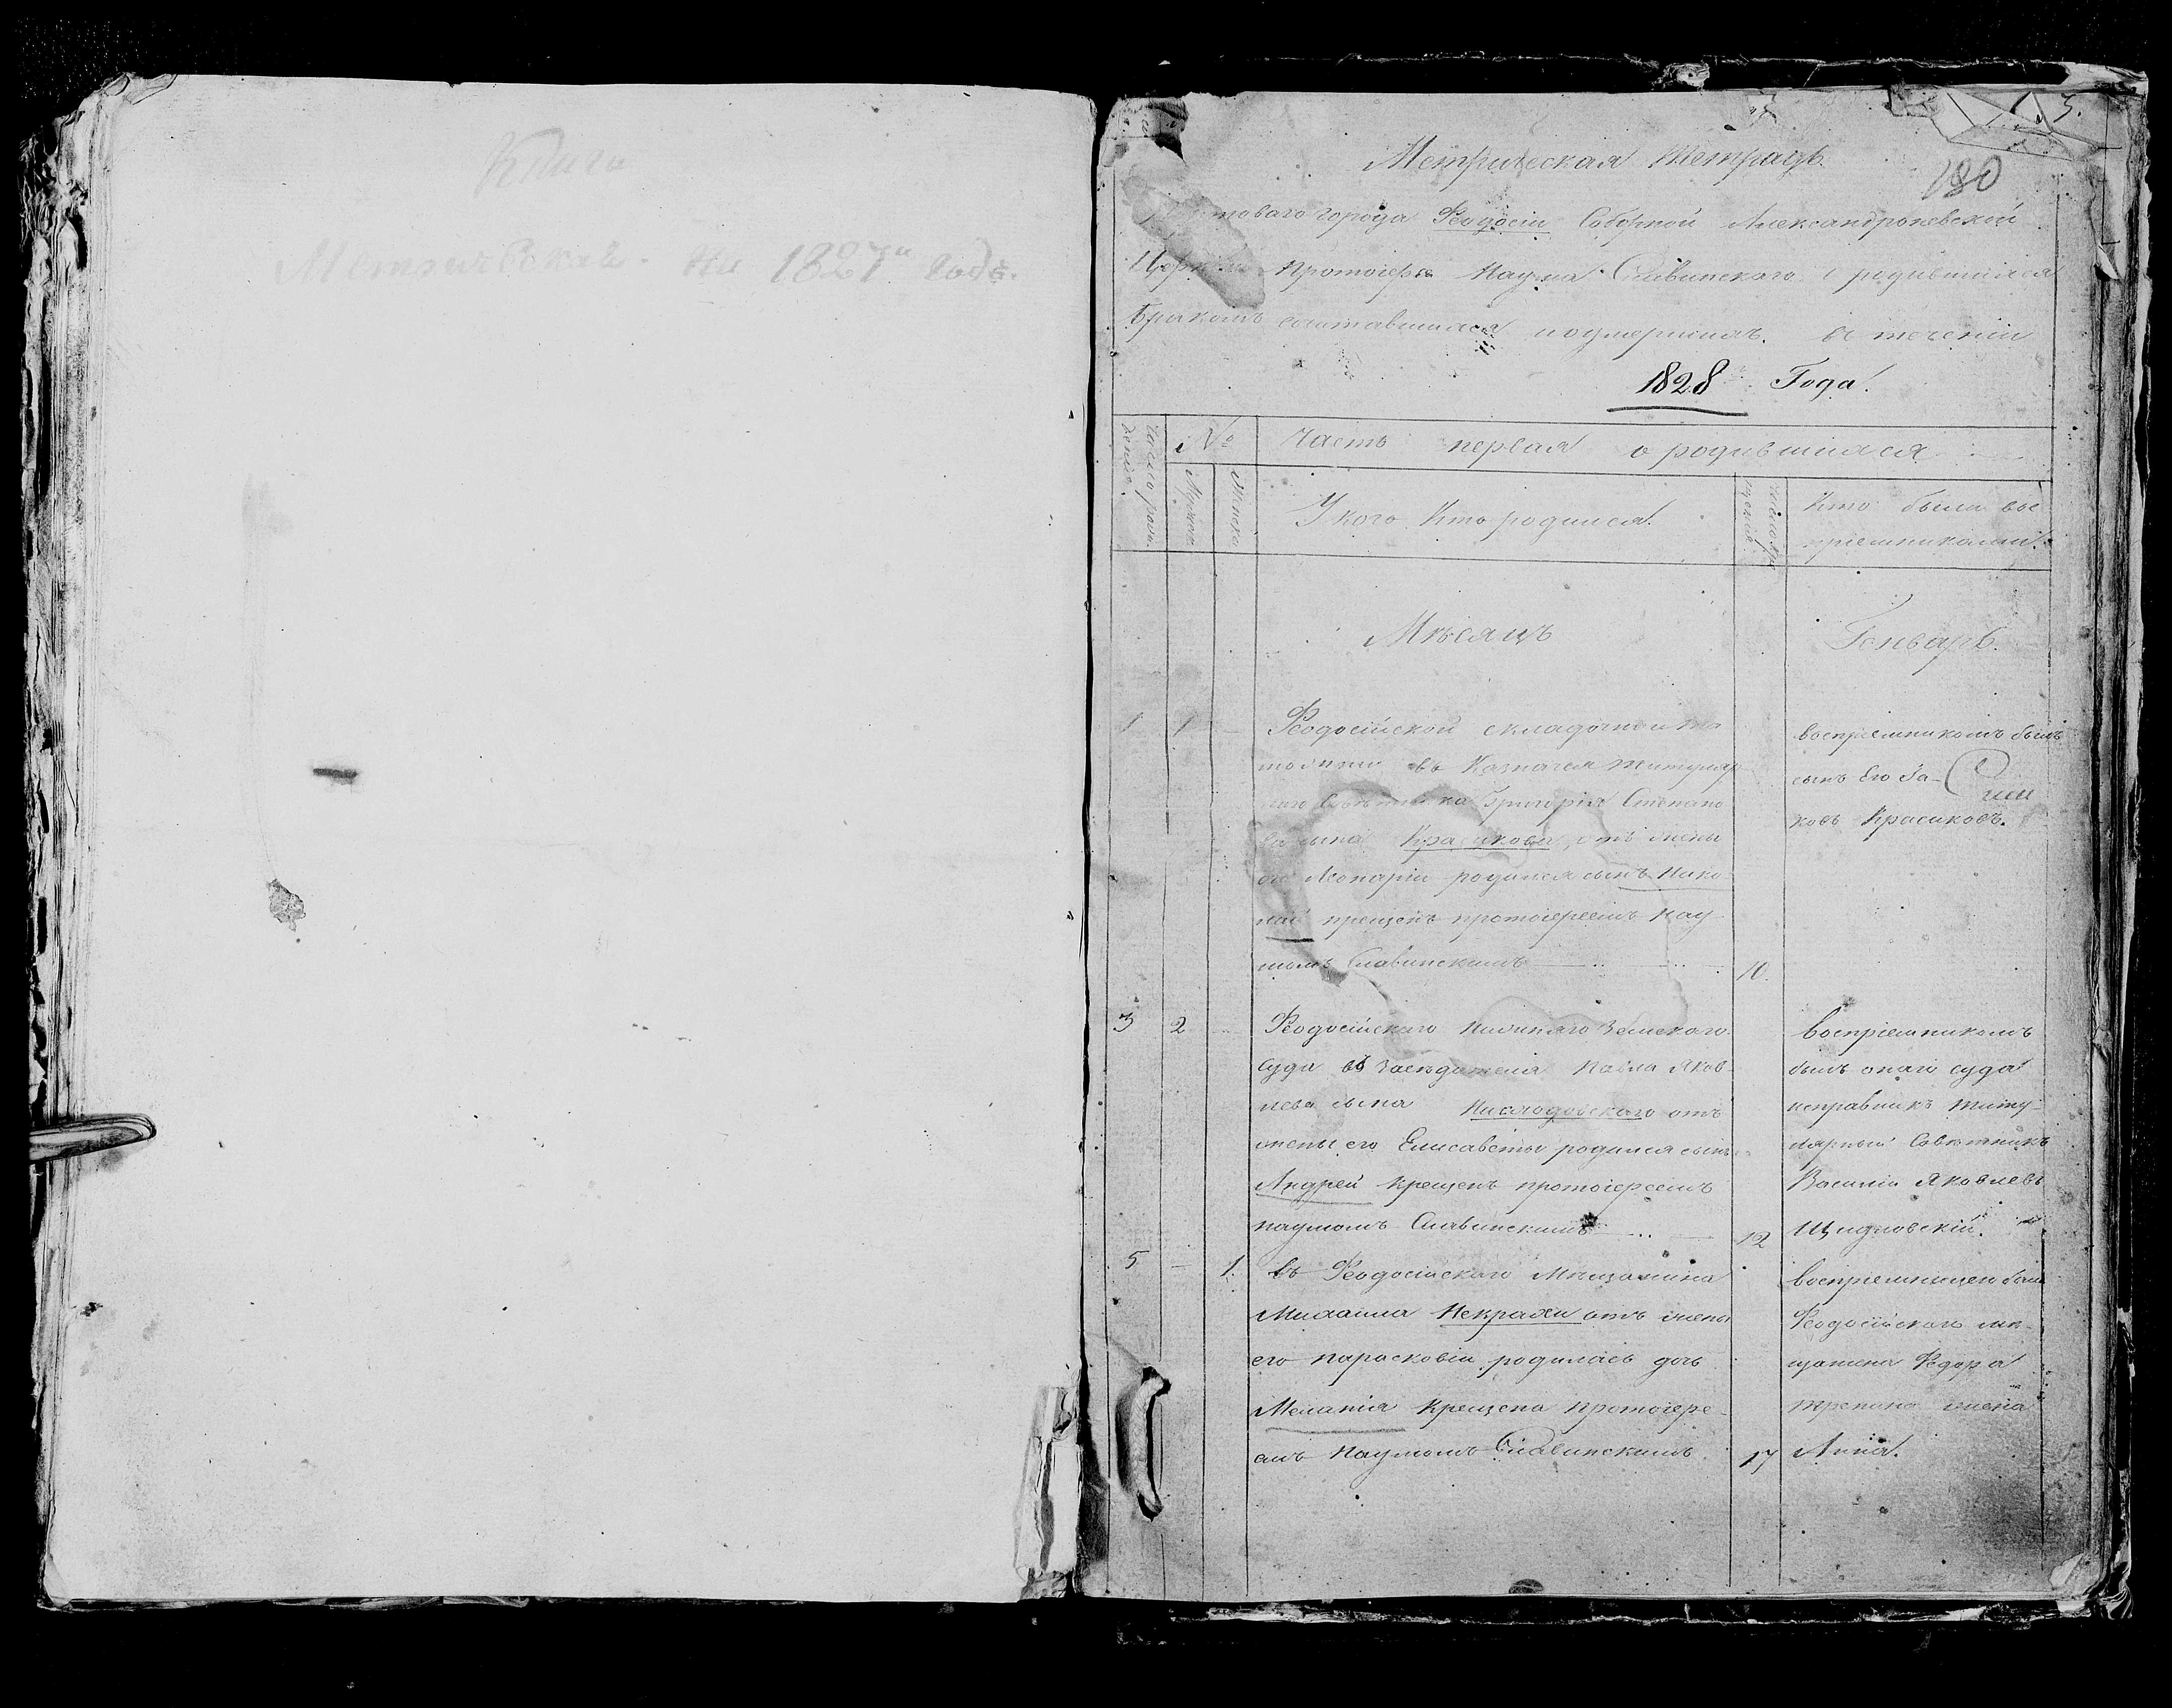 Книга
Метрическая. На 1827й Годъ.
5.
180
Метрическая Тетрадь
города Феодосіи Соборной Александроневской
Церкви Протоіерея Наума Славинскаго о родившихся
бракомъ сочетавшихся и оумершихъ. въ теченіи
1828 Года.
№ Часть первая о родившихся
Число рож
деніе.
Мужеск
Женско
У кого, Кто родился.
Число кре
щенія
Кто были вос
пріемниками.
Мѣсяцъ Генварь.
1 1 Феодосійской складочной та
можни въ Казначея титуляр
наго Совѣтника Григорія Степано
ва сына Красикова, отъ жены
его родился сынъ Нико
лай крещенъ протоіереемъ Нау
момъ Славинскимъ 10.
воспріемникомъ былъ
сынъ Его
ковъ Красиковъ.
3 2 Феодосійскаго Нижняго Земскаго
суда въ Засѣдателя Павла Яков
лева сына отъ
жены его Елисаветы родился сынъ
Андрей крещенъ протоіереемъ
наумомъ Славинскимъ 12
воспріемникомъ
былъ онаго суда
исправникъ титу
лярный Совѣтникъ
Василій Яковлевъ
Щидловскій.
5 – 1. въ Феодосійскаго Мѣщанина
Михаила Некрахи отъ жены
его парасковіи родилась дочь
Меланія Крещена протоіере
емъ Наумомъ Славинскимъ 17
воспріемницею была
Феодосійскаго мѣ
щанина Федора
трепана жена
Анна.